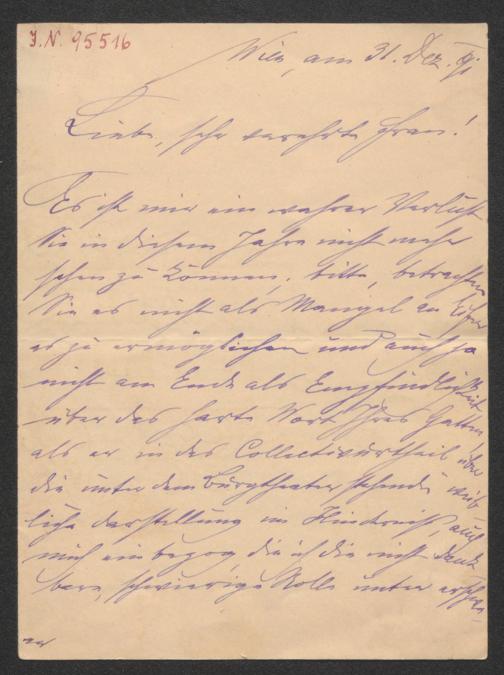 J.N. 95516
Wien, am 31. Dez. 91
Liebe, sehr verehrte Frau!
Es ist mir ein wahrer Verlust
Sie in diesem Jahre nicht mehr
sehen zu können, bitte, betrachten
Sie es nicht als Mangel an Eifer
es zu ermöglichen und auch ja
nicht am Ende als Empfindlichkeit
über das harte Wort Ihres Gatten
als er in das Collectivurtheil über
die unter dem Burgtheater stehende weib
liche Darstellung im Hinderniß, auch
mich einbezog, die ich die nicht dank
bare, schwierige Rolle unter